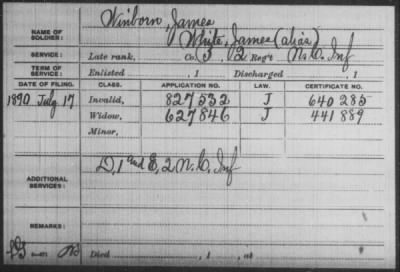 NAME OF SOLDIER: Winborn, James
White, James (alias)
SERVICE: Late rank, Co. 2 Reg't N.C. Inf
TERM OF SERVICE: Enlisted , 1 Discharged , 1
DATE OF FILING. CLASS. APPLICATION NO. LAW. CERTIFICATE NO.
1890 July 17 Invalid, 827532 J 640285
Widow, 627846 J 441889
Minor,
ADDITIONAL SERVICES: D, 1 and E, 2 N.C. Inf
REMARKS:
Died , 1 , at